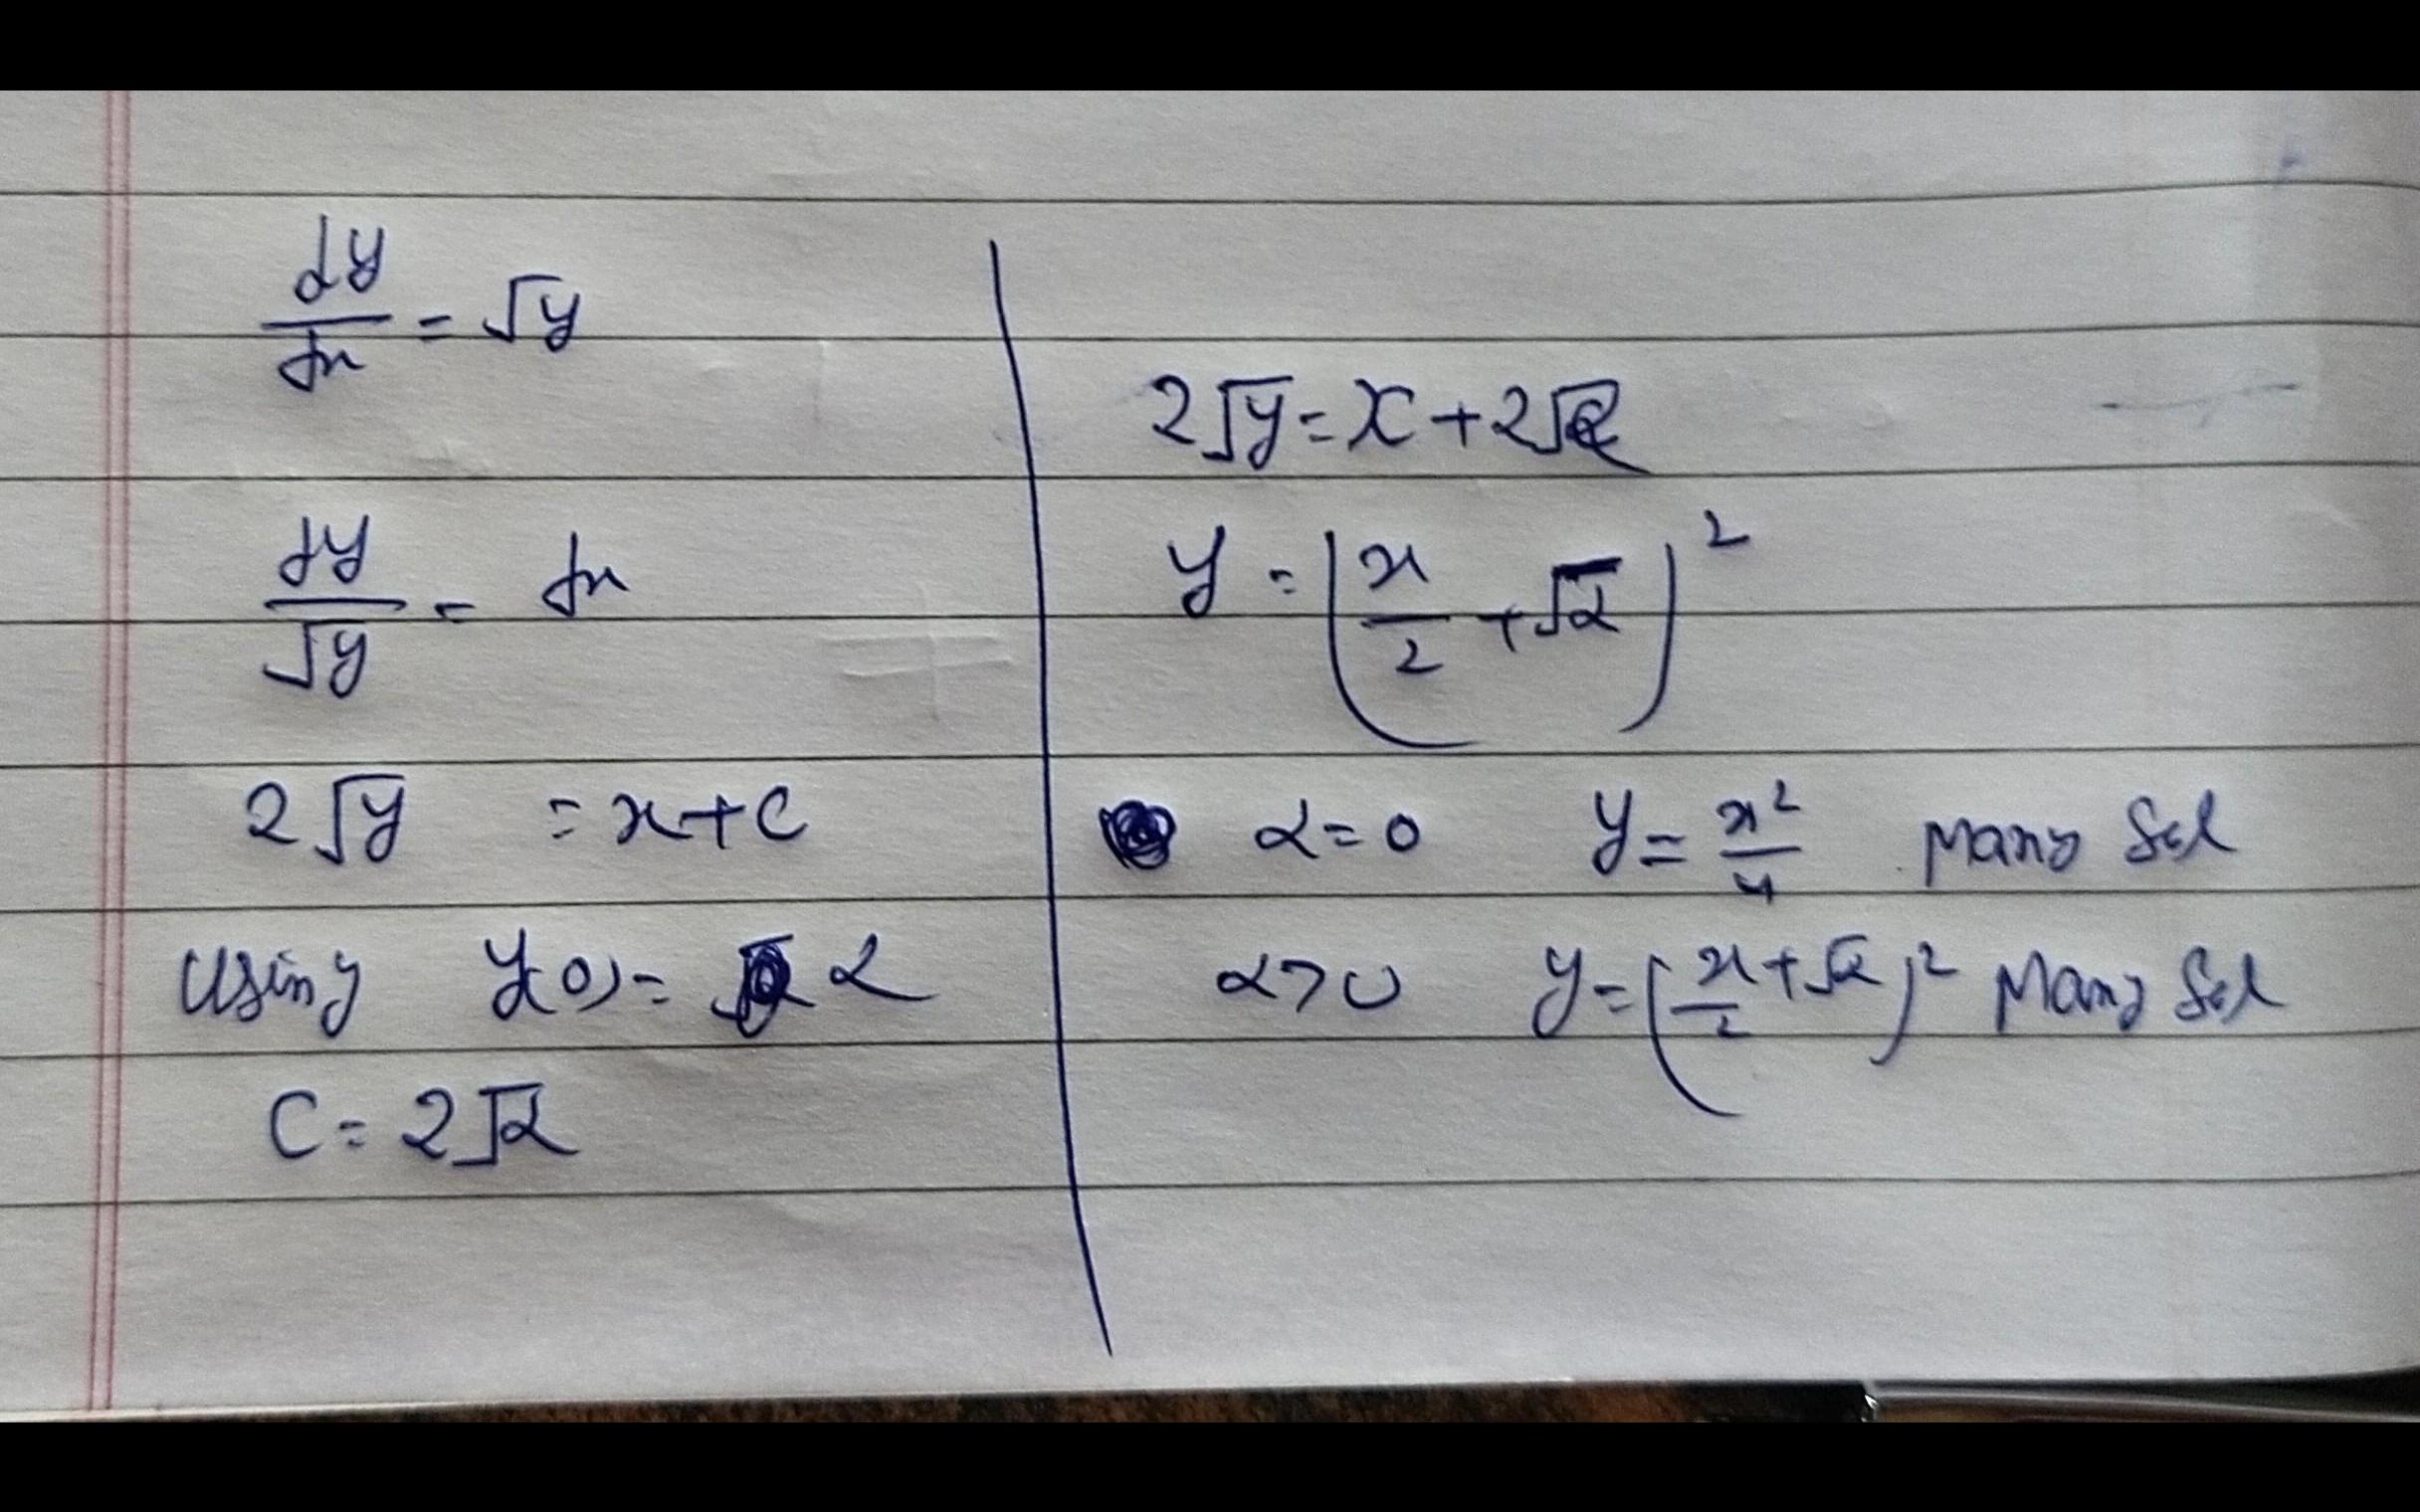 dy/dx = √y
dy/√y = dx
2√y = x+c
Using y(0) = α
C = 2√α
2√y = x+2√α
y = (x/2 + √α)²
α=0 y = x²/4 Many Sol
α>0 y = (x/2 + √α)² Many Sol